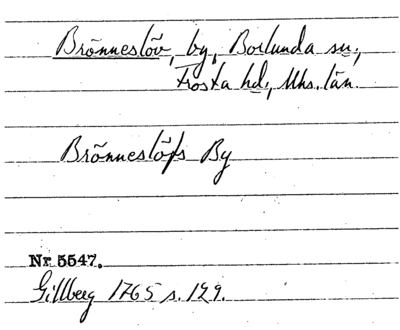 Brönneslöv, by, Borlunda sn;
Frosta hd; Mhs. län.
Brönneslöfs By
Nr. 5547.
Gillberg 1765 s. 129.